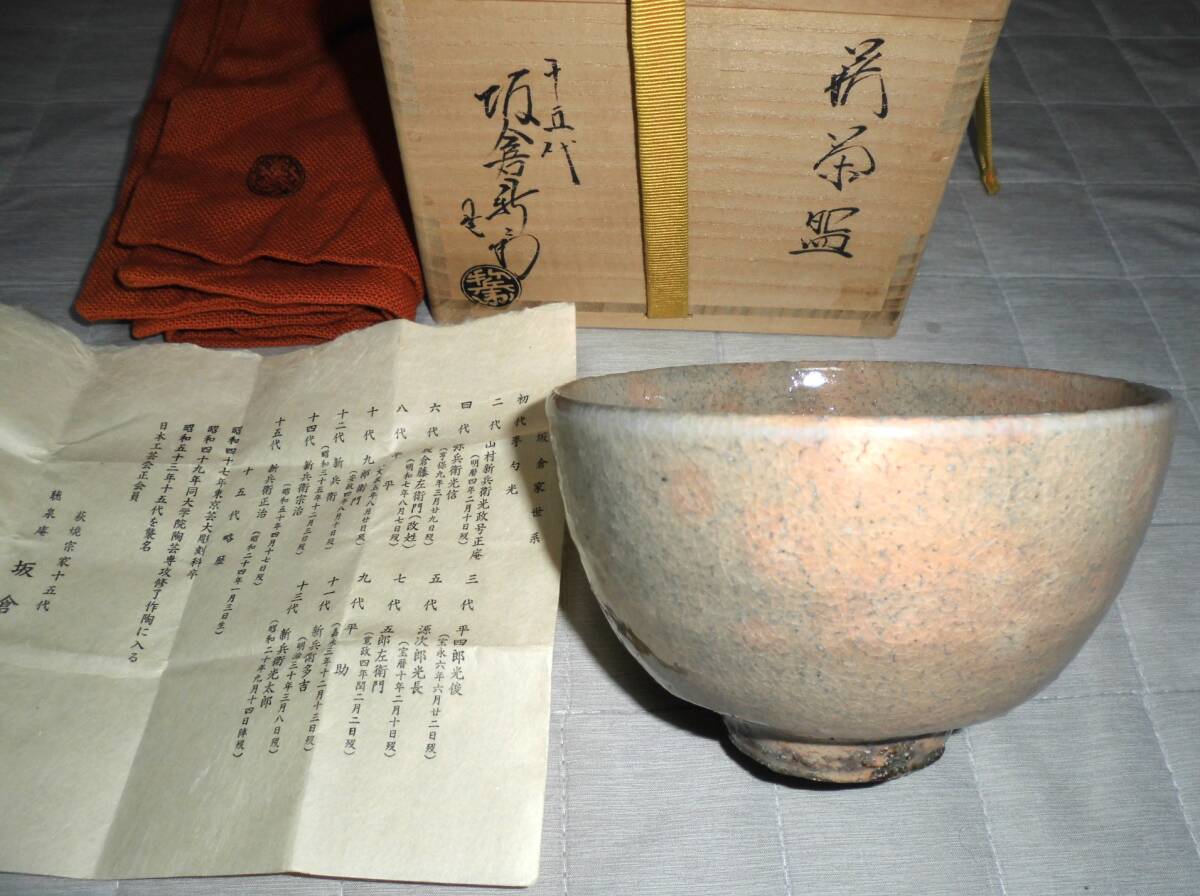 萩茶盌
十五代
坂倉新兵衛
坂倉家世系
初代 李勺光
二代 山村新兵衛光政号正庵
(明暦四年二月十日歿)
三代 平四郎光俊
(宝永六年六月廿二日歿)
四代 弥兵衛光信
(享保九年三月廿九日歿)
五代 源次郎光長
(宝暦十年二月十日歿)
六代 坂倉藤左衛門(改姓)
(明和七年八月七日歿)
七代 五郎左衛門
(寛政四年閏二月二日歿)
八代
九代 平助
(嘉永三年十二月十三日歿)
十代 九郎右衛門
十一代 新兵衛多吉
(明治三十年三月八日歿)
十二代 新兵衛
十三代 新兵衛光太郎
(昭和二十年九月十四日陣歿)
十四代 新兵衛宗治
(昭和三十五年十二月三日歿)
十五代 新兵衛正治
(昭和五十年四月十七日歿)
十五代略歴
(昭和二十四年一月三日生)
昭和四十七年東京芸大彫刻科卒
昭和四十九年同大学院陶芸専攻修了作陶に入る
昭和五十三年十五代を襲名
日本工芸会正会員
萩焼宗家十五代
聴泉庵 坂倉